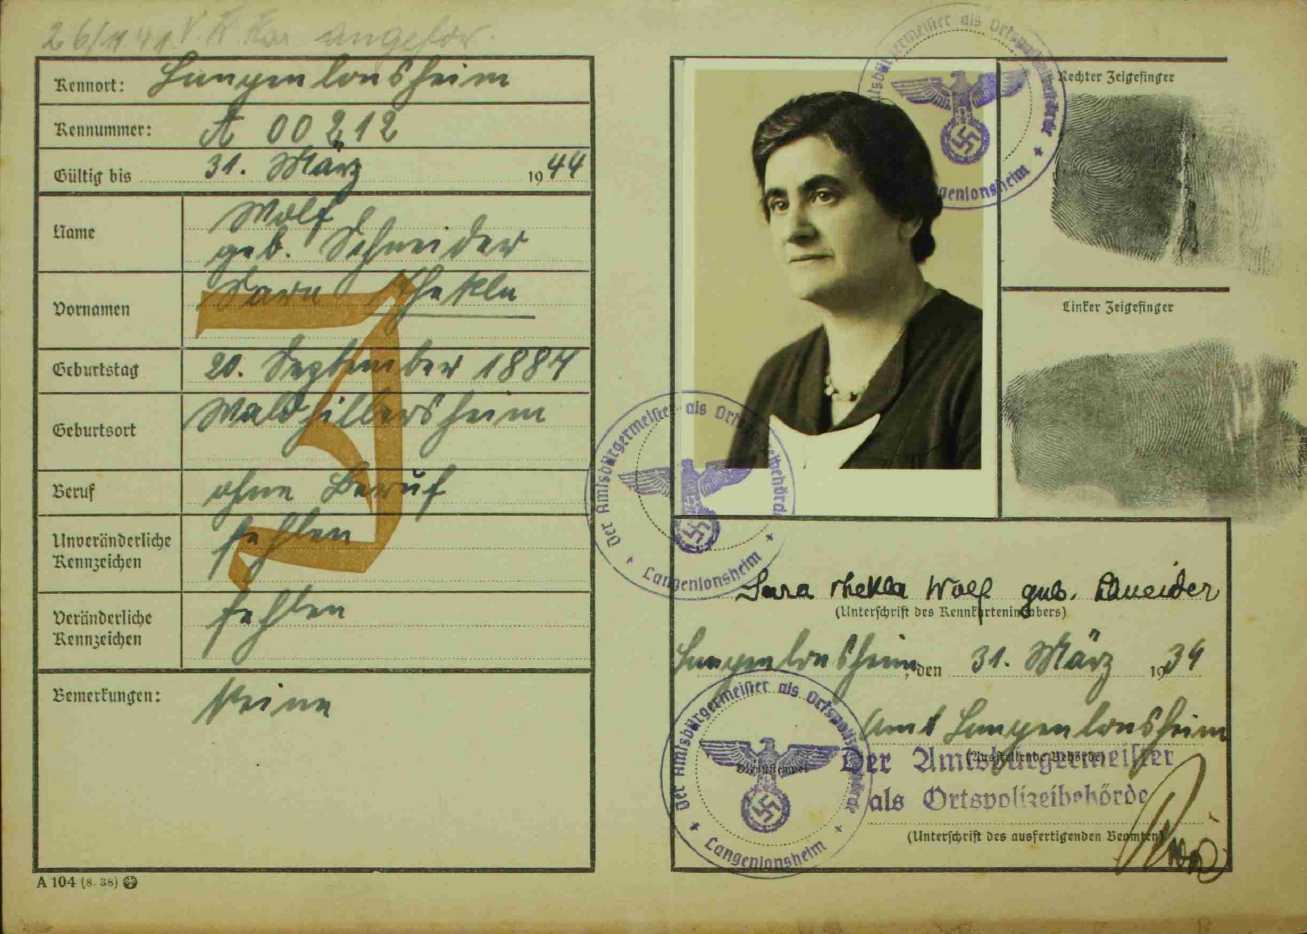 26/11 41
Kennort: Langenlonsheim
Kennummer: A 00212
Gültig bis 31. März 1944
Name Wolf
geb. Schneider
Vornamen Sara Thekla
J
Geburtstag 20. September 1884
Geburtsort Waldhilbersheim
Beruf ohne Beruf
Unveränderliche
Kennzeichen fehlen
Veränderliche
Kennzeichen fehlen
Bemerkungen: Keine
A 104 (8. 38)
Der Amtsbürgermeister als Ortspolizeibehörde
Langenlonsheim
Rechter Zeigefinger
Linker Zeigefinger
Der Amtsbürgermeister als Ortspolizeibehörde
Langenlonsheim
Sara Thekla Wolf geb. Schneider
(Unterschrift des Kennkarteninhabers)
Langenlonsheim, den 31. März 1939
Amt Langenlonsheim
(Ausstellende Behörde)
Der Amtsbürgermeister
als Ortspolizeibehörde
(Unterschrift des ausfertigenden Beamten)
Der Amtsbürgermeister als Ortspolizeibehörde
Langenlonsheim
Dienststempel